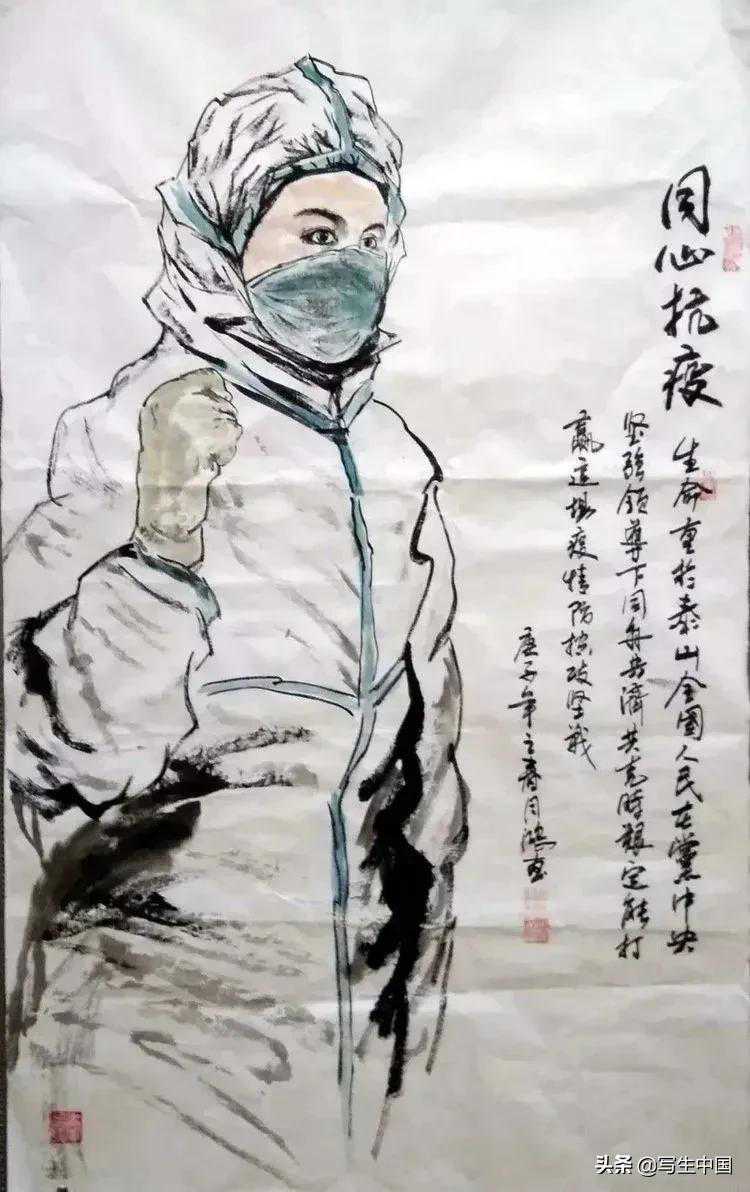 同心抗疫
生命重於泰山全國人民在黨中央
坚强领導下同舟共濟共克時艱定能打
赢這場疫情防控攻坚战
庚子年之春月鸿画
头条 @写生中国